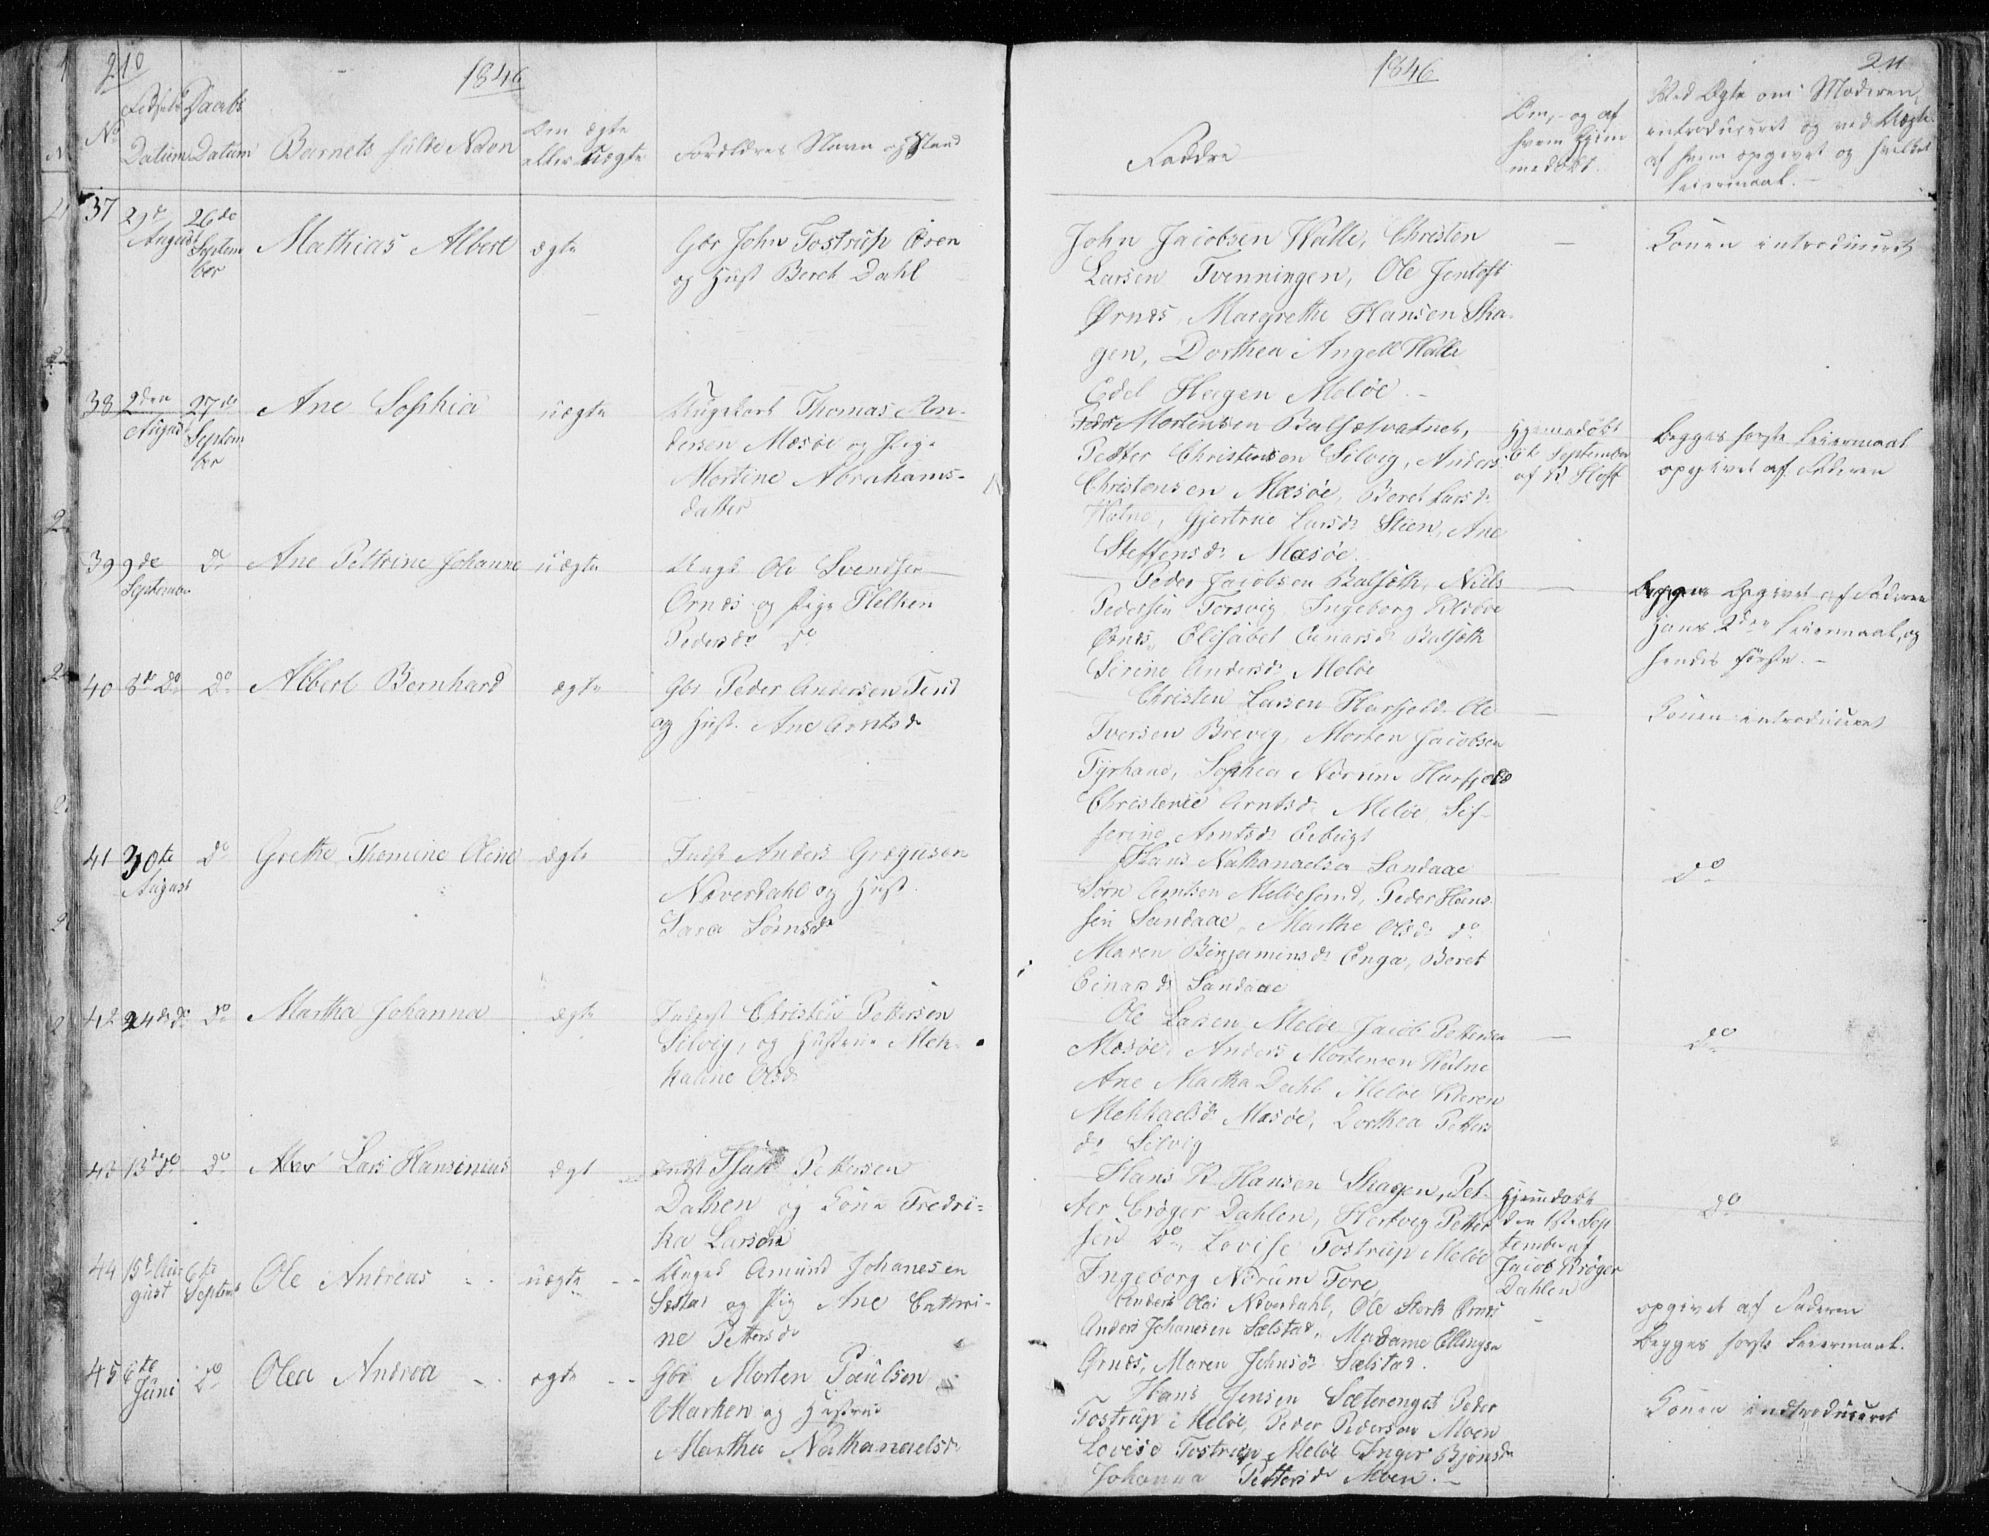 210
1846
No
Fødsels Datum
Daabs Datum
Barnets fulde Navn
Om ægte
eller uægte
Forældres Navn og Stand
37
29de
August
26de
Septem
ber
Mathias Albert
ægte
Gbr John Tostrup Ören
og Hust Beret Dahl
38
2den
August
27de
Septem
ber
Ane Sophia
uægte
Ungekarl Thomas An-
dersen Mæsöe og Pige
Mortine Abrahams-
datter
39
9de
September
do
Ane Pettrine Johanne
uægte
Ungk Ole Svendsen
Örnes og Pige
Pedersd. do
40
8de do
do
Albert Bernhard
ægte
Gbr Peder Andersen Tend
og Hust. Ane Arntsd
41
30te
August
do
Grethe Thomine Oline
ægte
Indst Anders Gregusen
Næverdahl og Hust.
Sara Sörnsd
42
24de do
do
Martha Johanna
ægte
Inderst Christen Pettersen
Selvig, og Hustrue Meh-
kaline Olsd
43
13de do
do
Lars Hansinius
ægt
Indst Pettersen
Dahlen og Kone Fredri-
ka Larsen
44
15d Au-
gust
6te
Septemb
Ole Andreas
uægte
Ungk Amund Johanesen
og Pig Ane Cathri-
ne Pettersd
45
6te
Juni
do
Olea Andrea
ægte
Gbr Morten Paulsen
Marken og Hustrue
Martha Nathanaelsd
1846
211
Faddre
Om, og af
hvem Hjem
medöbt.
Ved Ægte om Moderen,
introduceret og ved Uægte
af hvem opgivet og hvilket
Leiermaal.
John Jacobsen Halle, Christen
Larsen Tvenningen, Ole Jentoft
Ørnes, Margrethe Hansen Ska-
gen, Dorthea Angell Halle
Edel Hagen Melöe.
—
Konen introduceret
Peder Mortensen Balsætvatnet,
Petter Christensen Selvig, Anders
Christensen Mæsöe, Beret Larsd
Gjertrue Larsd Steen, Ane
Steffensd. Mæsöe
Hjemmedöbt
6te September
af
Begges første Leiermaal
opgivet af Faderen
Peder Jacobsen Balsæth, Niels
Pedersen Torsvig, Ingeborg
Örnes, Elisabet Einarsd Balsæth
Serine Andersd Melöe
—
Opgivet af Faderen
Hans 2den Leiermaal, og
hendes første.
Christen Larsen Harfjeld Ole
Iversen Brevig, Morten Jacobsen
Tyrhaug, Sophia Norum Harfjeld
Christense Arntsd. Melöe, Sef-
ferine Arntsd
—
Konen introduceret
Hans Nathanaelsen Sandaae
Sörn Arntsen Melöesund, Peder Han-
sen Sandaae, Marthe Olsd do
Maren Benjaminsd Enga, Beret
Einarsd Sandaae
—
do
Ole Larsen Melöe Jacob Pettersen
Mæsöe. Anders Mortensen
Ane Martha Dahl Melöe Karen
Mehkaelsd Mæsöe, Dorthea Petters
d. Selvig
—
do
Hans R Hansen Skagen, Pet-
ter Cröger Dahlen, Hertvig Petter
sen do. Lovise Tostrup Melöe
Ingeborg Norum Fore
Hjemdöbt
den 1ste Sep
tember af
Jacob Kröger
Dahlen
do
Anders Næverdahl, Ole Stork Örnes
Anders Johanesen Sælstad, Madame Ellingsen
Örnes, Maren Johnsd. Sælstad.
—
opgivet af Faderen
Begges første Leiermaal.
Hans Jensen Sæterenget Peder
Tostrup Melöe, Peder Pedersen Moen
Lovise Tostrup Melöe Inger Björnsd
Johanna Pettersd Moen.
Konen indtroduceret